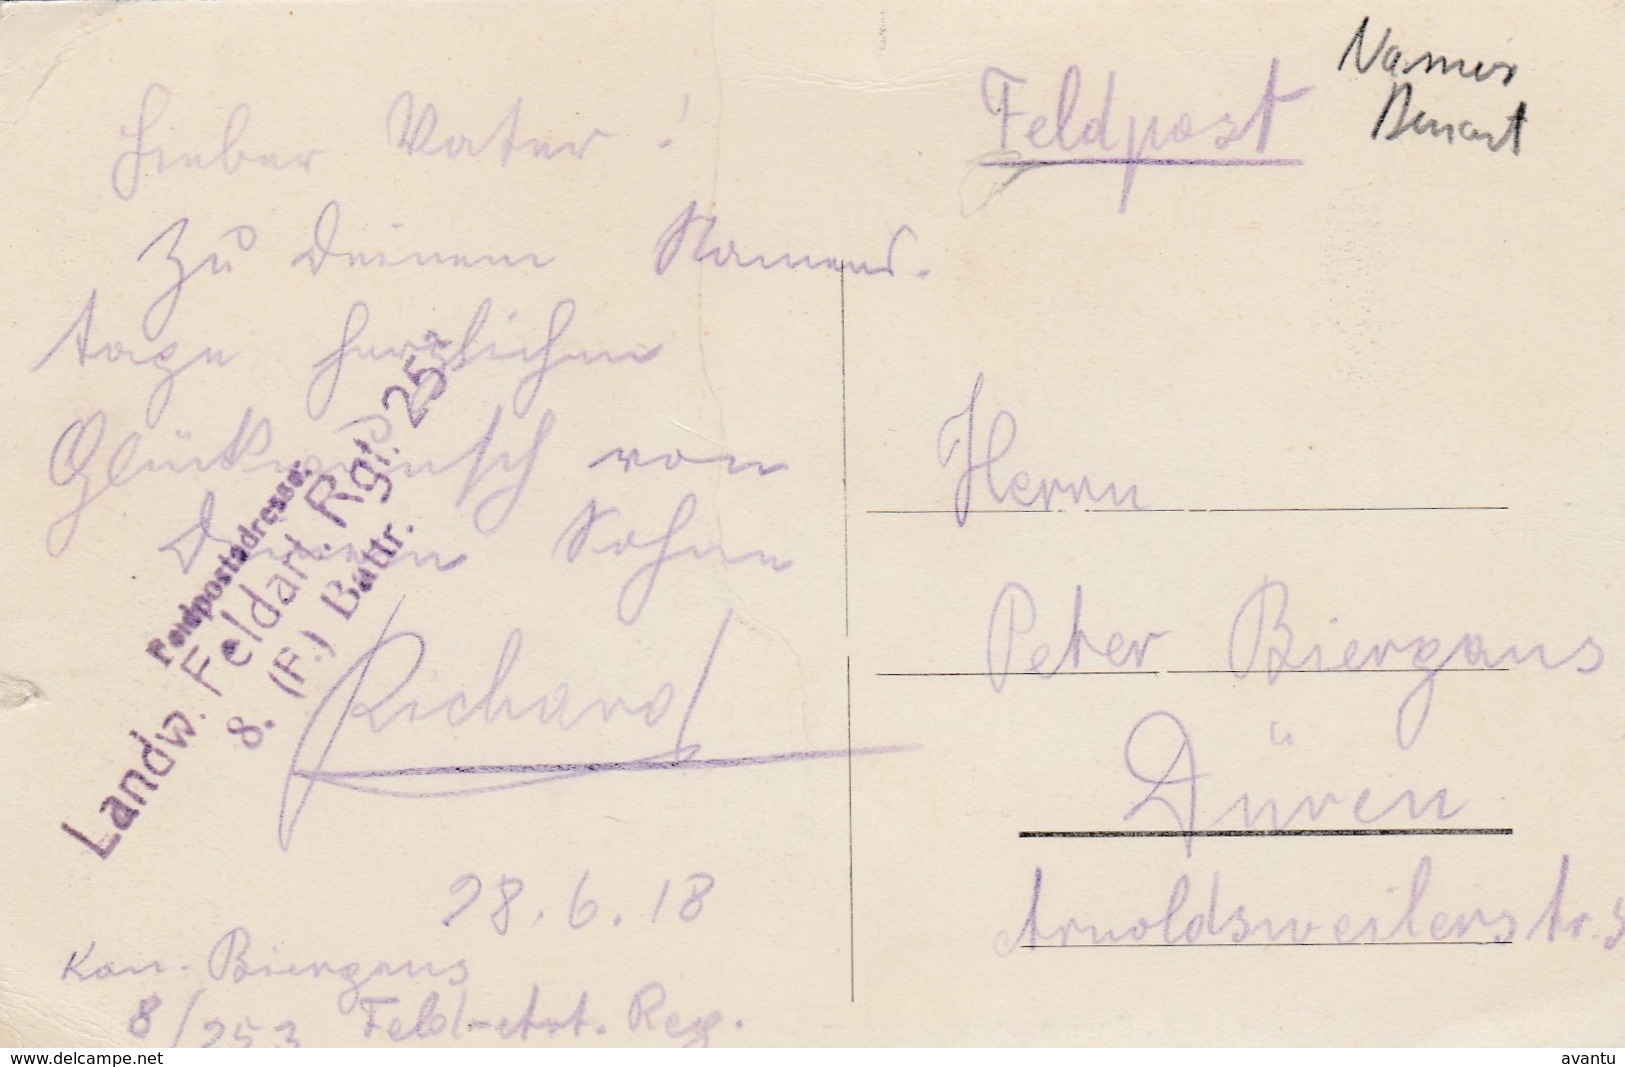 Lieber Vater!
Zu Deinem Namens-
tage herzlichen
Glückwunsch von
Deinem Sohne
Richard
28.6.18
Kan. Biergans
8/253 Feld-Art. Reg.
Feldpostadresse:
Landw. Feldart. Rgt. 253
8. (F.) Battr.
Feldpost
Namur
Herrn
Peter Biergans
Düren
Arnoldsweilerstr. 3
delcampe.net
avantu